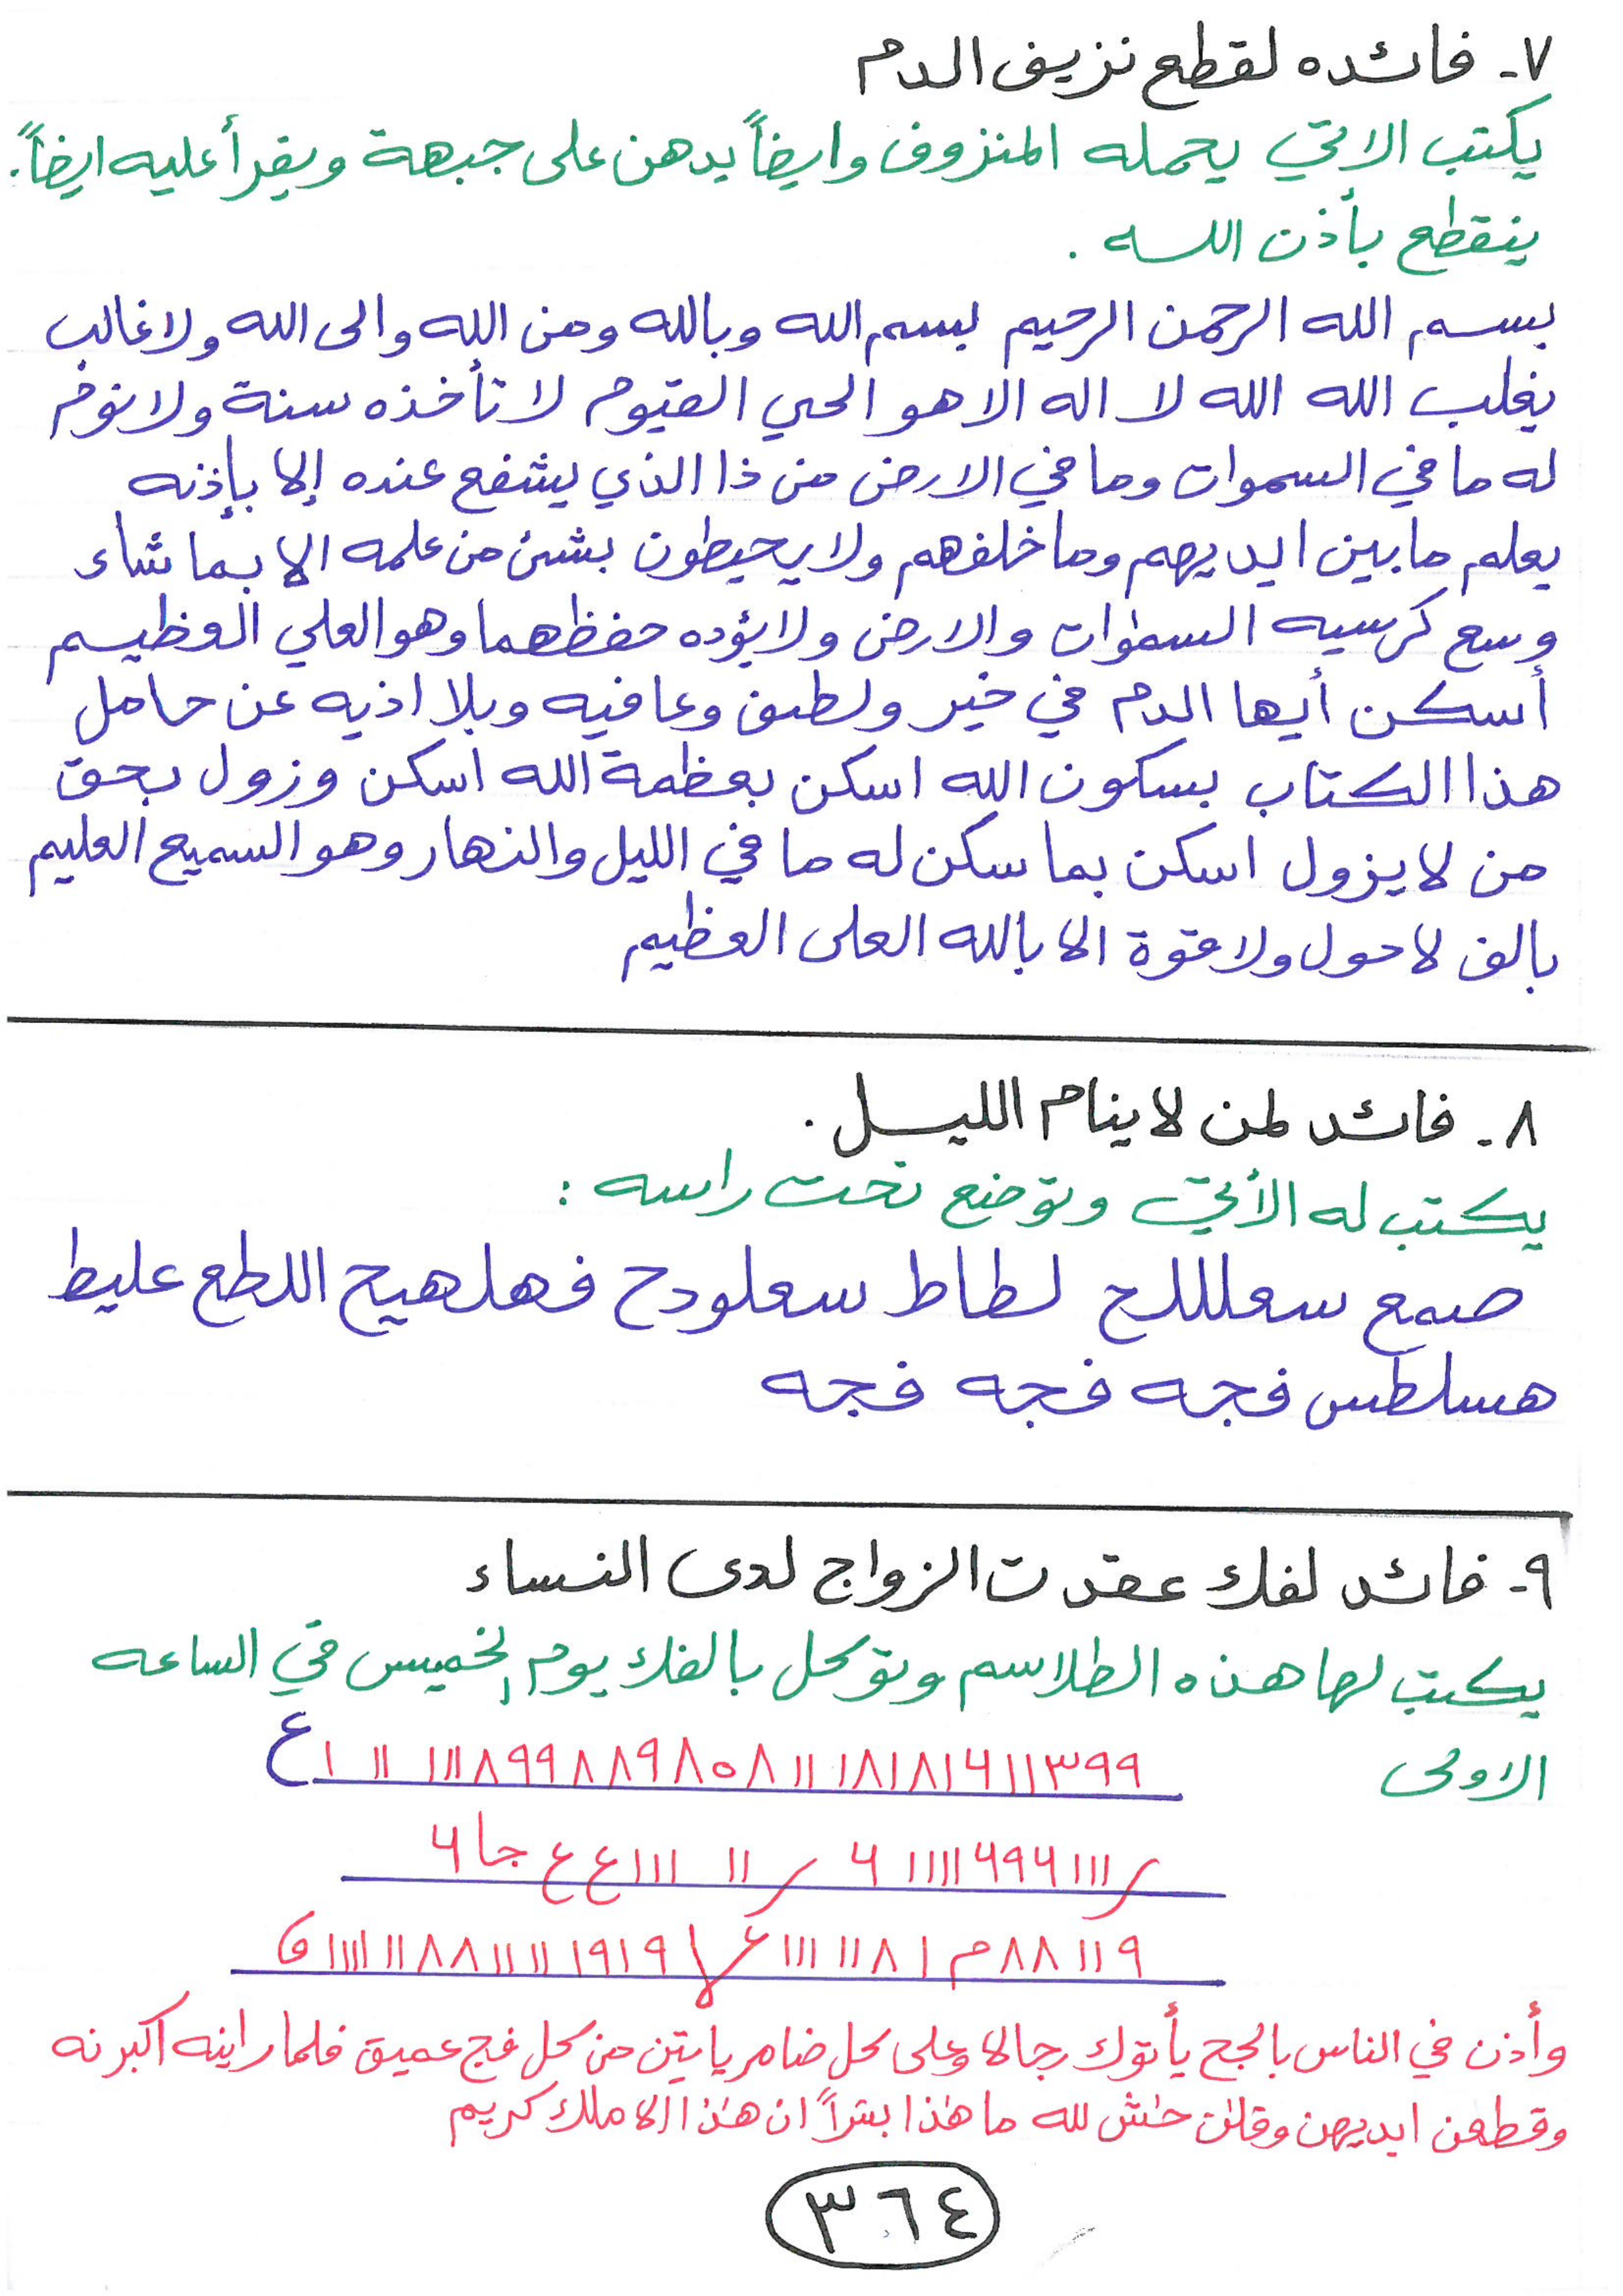 ٧- فائده لقطع نزيف الدم
يكتب الاتي يحمله المنزوف وايضاً يدهن على جبهة ويقرأ عليه ايضاً.
ينقطع بأذن الله .
بسم الله الرحمن الرحيم بسم الله وبالله ومن الله والى الله ولا غالب
يغلب الله الله لا اله الا هو الحي القيوم لا تأخذه سنة ولا نوم
له ما في السموات وما في الارض من ذا الذي يشفع عنده إلا بإذنه
يعلم ما بين ايديهم وما خلفهم ولا يحيطون بشئ من علمه الا بما شاء
وسع كرسيه السموات والارض ولا يؤده حفظهما وهو العلي العظيم
أسكن أيها الدم في خير ولطف وعافيه وبلا اذيه عن حامل
هذا الكتاب بسكون الله اسكن بعظمة الله اسكن وزول بحق
من لا يزول اسكن بما سكن له ما في الليل والنهار وهو السميع العليم
بالف لا حول ولا قوة الا بالله العلى العظيم
٨- فائد لمن لا ينام الليل .
يكتب له الأتي وتوضع تحت راسه :
صمع سعلللح لطاط سعلودح فهلهيح اللطع عليط
هسلطس فجه فجه فجه
٩- فائد لفك عقد ت الزواج لدى النساء
يكتب لها هذه الطلاسم وتوكل بالفك يوم الخميس في الساعه
الاولى
وأذن في الناس بالحج يأتوك رجالا وعلى كل ضامر ياتين من كل فج عميق فلما راينه اكبرنه
وقطعن ايديهن وقلن حٰش لله ما هٰذا بشراً ان هٰذا الا ملك كريم
٣٦٤